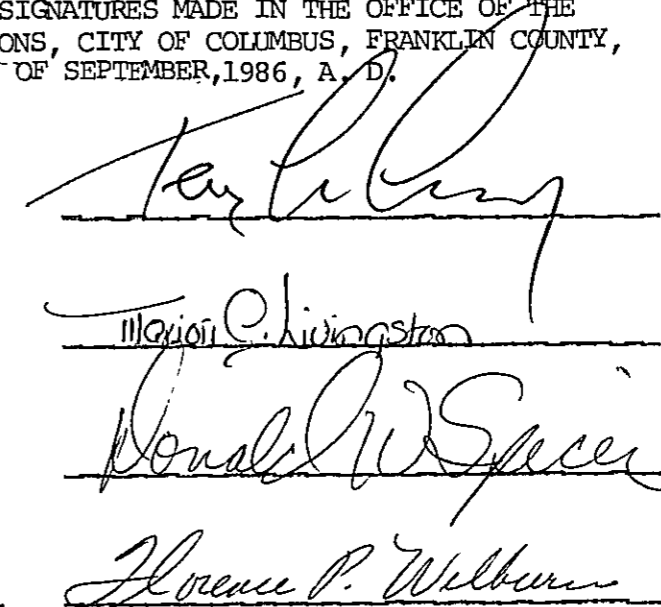 SIGNATURES MADE IN THE OFFICE OF THE
ONS, CITY OF COLUMBUS, FRANKLIN COUNTY,
OF SEPTEMBER,1986, A. D.
Marion C. Livingston
Donald W Spicer
Florence P. Wilburn